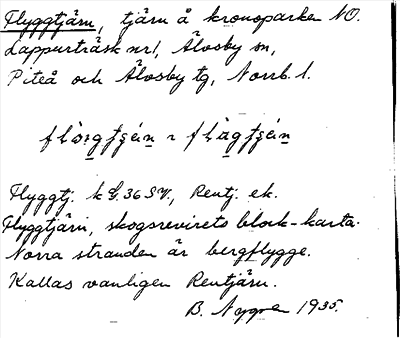 Flyggtjärn, tjärn å kronoparken NO.
Lappurträsk nr1, Älvsby sn,
Piteå och Älvsby tg, Norrb. l.
Flyggtj. k 36 SV, Rentj. ek.
Flyggtjärn, skogsrevirets block-karta.
Norra stranden är bergflygge.
Kallas vanligen Rentjärn.
B. Nygren 1935.